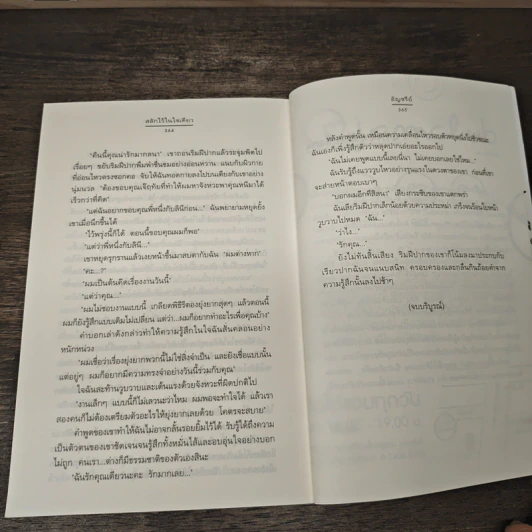 สลักไว้ในใจเดียว
364
"คืนนี้คุณน่ารักมากลนา" เขาถอนริมฝีปากแล้วระจุมพิตไป
เรื่อยๆ ขยับริมฝีปากพึมพำชื่นชมอย่างอ่อนหวาน แนบกับผิวกาย
ที่อ่อนไหวตรงซอกคอ จับให้ฉันทอดกายลงไปบนเตียงกับเขาอย่าง
นุ่มนวล "ต้องขอบคุณเจ๊กุกัยที่ทำให้มหาจังหวะพาคุณหนีมาได้
เร็วกว่าที่คิด"
"แต่ฉันอยากขอบคุณพี่หนึ่งกับลินีก่อน..." ฉันพยายามหยุดยั้ง
เขาเมื่อนึกขึ้นได้
"ไว้พรุ่งนี้ก็ได้ ตอนนี้ขอบคุณผมก็พอ"
"แต่ว่าพี่หนึ่งกับลินี..."
เขาหยุดรุกรานแล้วเงยหน้าขึ้นมาสบตากับฉัน "ผมต่างหาก"
"คะ...?"
"ผมเป็นต้นคิดเรื่องงานวันนี้"
"แต่ว่าคุณ..."
"ผมไม่ชอบงานแบบนี้ เกลียดพิธีรีตองยุ่งยากสุดๆ แล้วตอนนี้
ผมก็ยังรู้สึกแบบเดิมไม่เปลี่ยน แต่ว่า...ผมก็อยากทำอะไรเพื่อคุณบ้าง"
คำบอกเล่าดังกล่าวทำให้ความรู้สึกในใจฉันสั่นคลอนอย่าง
หนักหน่วง
"ผมเชื่อว่าเรื่องยุ่งยากพวกนี้ไม่ใช่สิ่งจำเป็น และยังเชื่อแบบนั้น
แต่อยู่ๆ ผมก็อยากมีความทรงจำอย่างวันนี้ร่วมกับคุณ"
ใจฉันสะท้านวูบวาบและเต้นแรงด้วยจังหวะที่ผิดปกติไป
"งานเล็กๆ แบบนี้ก็ไม่เลวนะว่าไหม ผมพอจะทำใจได้ แล้วเรา
สองคนก็ไม่ต้องเตรียมตัวอะไรให้ยุ่งยากเลยด้วย โคตรจะสบาย"
คำพูดของเขาทำให้ฉันไม่อาจกลั้นรอยยิ้มไว้ได้ รับรู้ได้ถึงความ
เป็นตัวตนของเขาชัดเจนจนรู้สึกทั้งหมั่นไส้และอบอุ่นใจอย่างบอก
ไม่ถูก คนเรา...ต่างก็มีธรรมชาติของตัวเองสินะ
"ฉันรักคุณเดียวนะคะ รักมากเลย..."
ธัญชรีย์
365
หลังคำพูดนั้น เหมือนความเคลื่อนไหวรอบตัวหยุดนิ่งไปชั่วขณะ
ฉันเองก็เพิ่งรู้สึกตัวว่าหลุดปากเอ่ยอะไรออกไป
"ฉันไม่เคยพูดแบบนี้เลยนี่นา ไม่เคยบอกเลยใช่ไหม..."
ฉันรับรู้ถึงแววูบไหวอย่างรุนแรงในดวงตาของเขา ก่อนที่เขา
จะส่ายหน้าตอบเบาๆ
"บอกผมอีกทีสิลนา" เสียงกระซิบของเขาแตกพร่า
ฉันเลียริมฝีปากเล็กน้อยด้วยความประหม่า เกร็งจนร้อนใบหน้า
วูบวาบไปหมด "ฉัน..."
"ว่าไง..."
"รักคุณ..."
ยังไม่ทันสิ้นเสียง ริมฝีปากของเขาก็โน้มลงมาประกบกับ
เรียวปากฉันจนแนบสนิท ครอบครองและกลืนกินถ้อยคำจาก
ความรู้สึกนั้นลงไปช้าๆ
(จบบริบูรณ์)